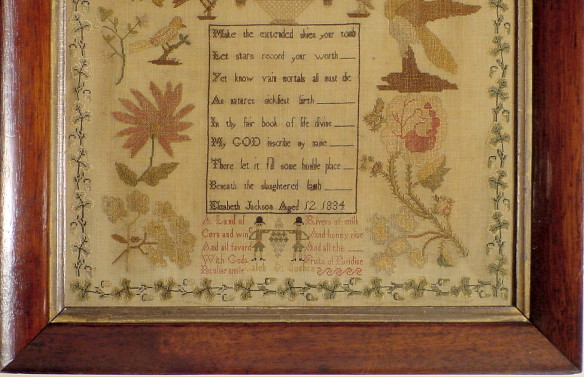 Make the extended skies your tomb
Let stars record your worth
Yet know vain mortals all must die
As natures sickliest birth
In thy fair book of life divine
My GOD inscribe my name
There let it fill some humble place
Beneath the slaughtered lamb
Elizabeth Jackson Aged 12 1834
A Land of Rivers of milk
Corn and wine And honey rise
And all favord And all the
With Gods Fruits of Paradise
Peculiar smile